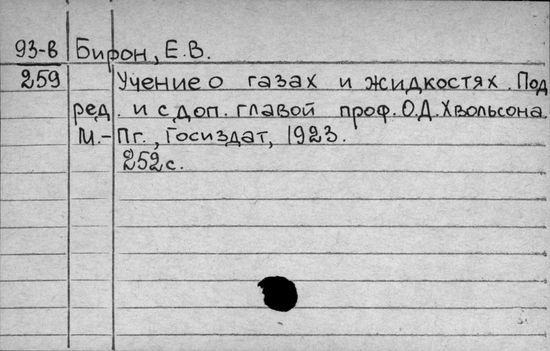 93-в Бирон, Е.В.
259 Учение о газах и жидкостях. Под
ред. и с доп. главой проф. О.Д. Хвольсона.
М.-Пг., Госиздат, 1923.
252 с.